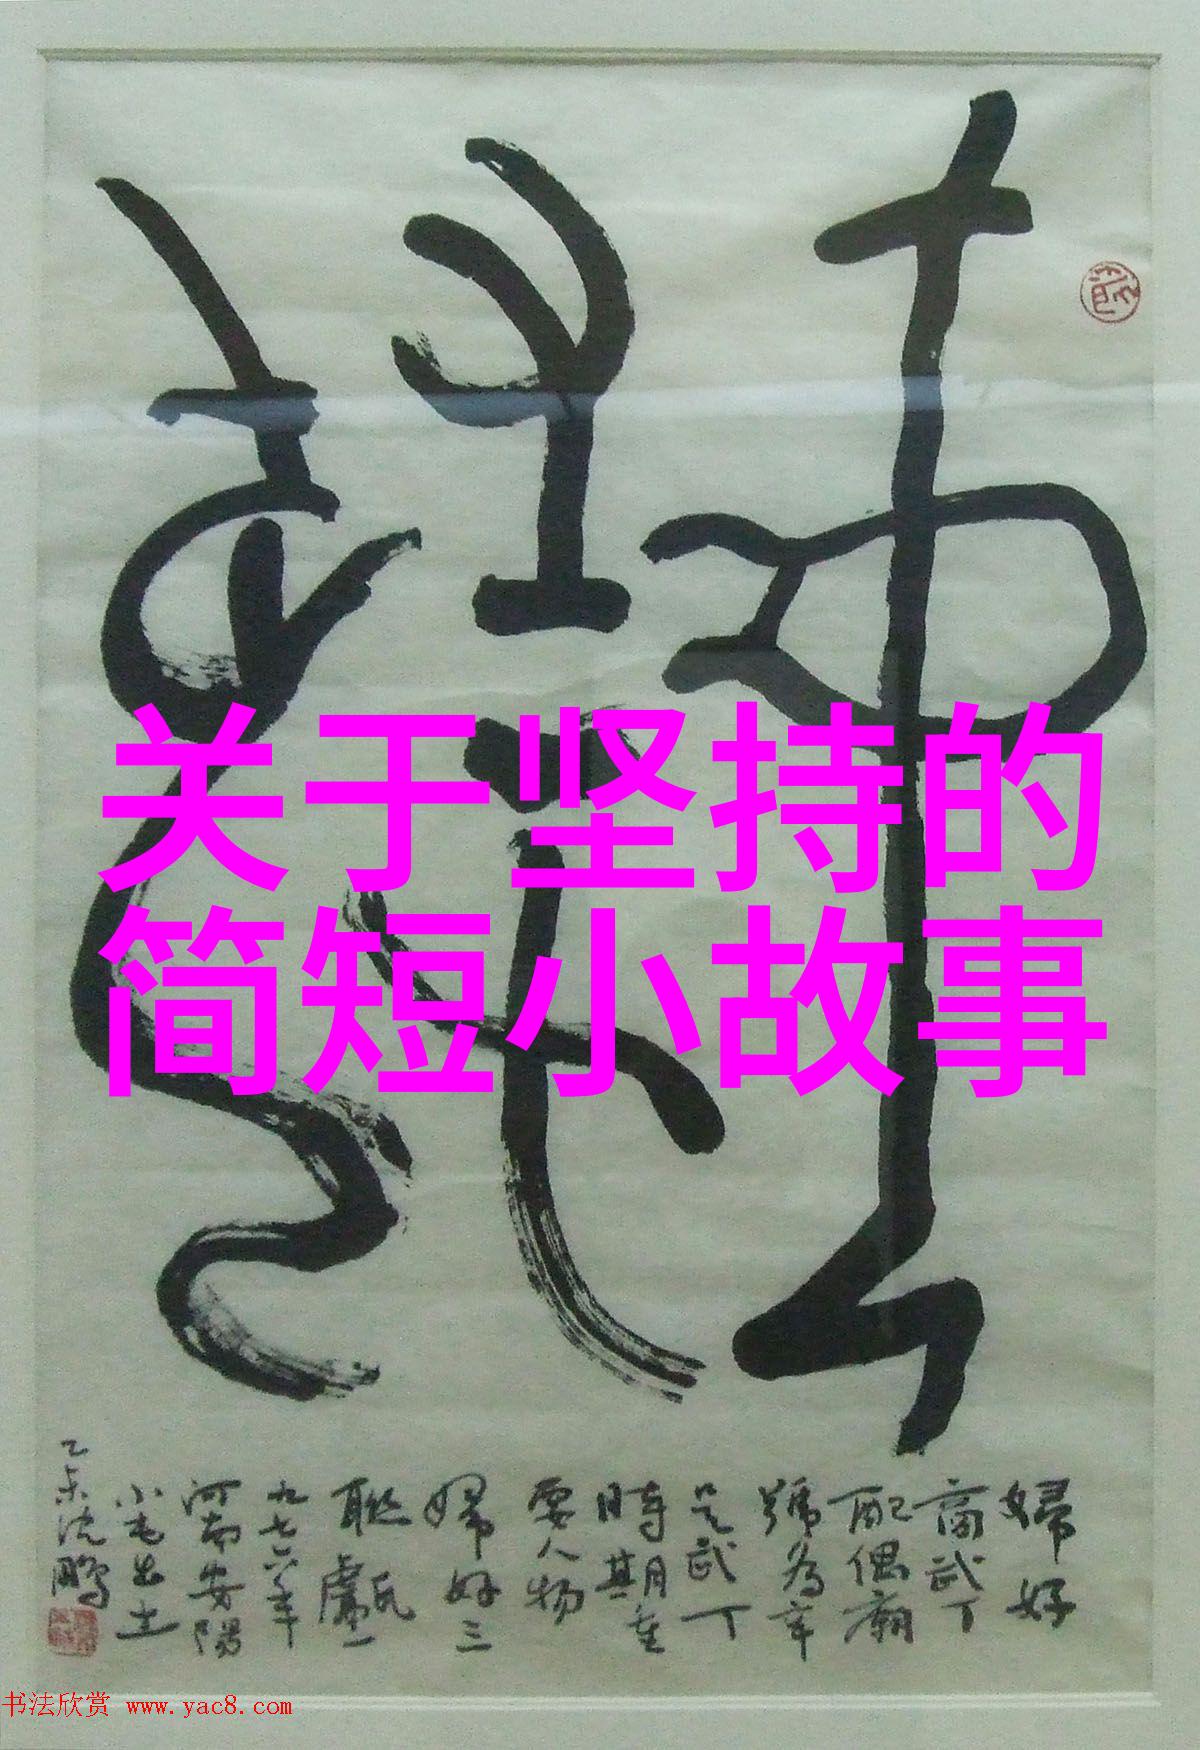 关于坚持的
简短小故事
婦好
商武丁
配偶廟
號为辛
是武丁
時期重
要人物
婦好三
聯甗一
九七六年
河南安陽
小屯出土
乙未沈鵬
书法欣赏 www.yac8.com